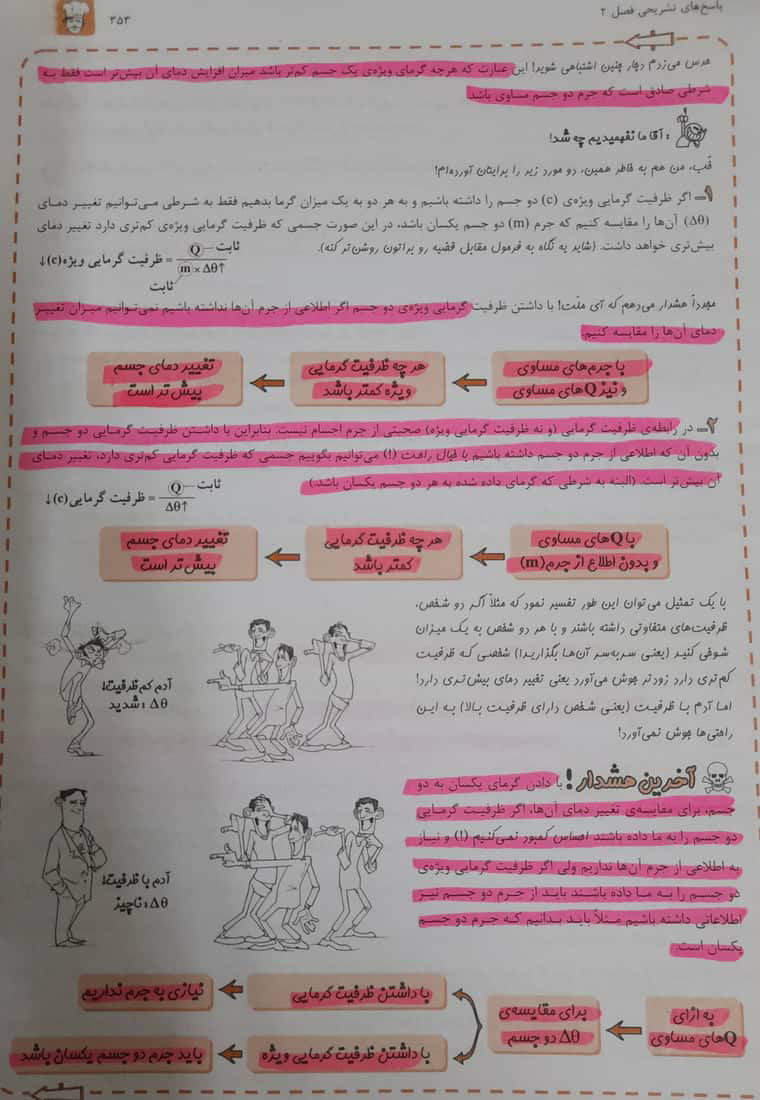 پاسخ‌های تشریحی فصل ۲
۳۵۳
حدس می‌زدم دچار چنین اشتباهی شوید! این عبارت که هرچه گرمای ویژه‌ی یک جسم کم‌تر باشد میزان افزایش دمای آن بیش‌تر است فقط به
شرطی صادق است که جرم دو جسم مساوی باشد.
: آقا ما نفهمیدیم چه شد!
خُب، من هم به خاطر همین، دو مورد زیر را برایتان آورده‌ام!
۱ـ اگر ظرفیت گرمایی ویژه‌ی (c) دو جسم را داشته باشیم و به هر دو به یک میزان گرما بدهیم فقط به شرطی می‌توانیم تغییر دمای
(Δθ) آن‌ها را مقایسه کنیم که جرم (m) دو جسم یکسان باشد، در این صورت جسمی که ظرفیت گرمایی ویژه‌ی کم‌تری دارد تغییر دمای
بیش‌تری خواهد داشت. (شاید یه نگاه به فرمول مقابل قضیه رو براتون روشن‌تر کنه).
ثابت
↓(c)ظرفیت گرمایی ویژه = Q / m×Δθ↑
ثابت
مجدداً هشدار می‌دهم که آی ملّت! با داشتن ظرفیت گرمایی ویژه‌ی دو جسم اگر اطلاعی از جرم آن‌ها نداشته باشیم نمی‌توانیم میزان تغییر
دمای آن‌ها را مقایسه کنیم.
با جرم‌های مساوی
و نیز Qهای مساوی
هر چه ظرفیت گرمایی
ویژه کمتر باشد
تغییر دمای جسم
بیش‌تر است
۲ـ در رابطه‌ی ظرفیت گرمایی (و نه ظرفیت گرمایی ویژه) صحبتی از جرم اجسام نیست. بنابراین با داشتن ظرفیت گرمایی دو جسم و
بدون آن که اطلاعی از جرم دو جسم داشته باشیم با خیال راحت (!) می‌توانیم بگوییم جسمی که ظرفیت گرمایی کم‌تری دارد، تغییر دمای
آن بیش‌تر است. (البته به شرطی که گرمای داده شده به هر دو جسم یکسان باشد.)
ثابت
↓(c)ظرفیت گرمایی = Q / Δθ↑
با Qهای مساوی
و بدون اطلاع از جرم(m)
هر چه ظرفیت گرمایی
کمتر باشد
تغییر دمای جسم
بیش‌تر است
با یک تمثیل می‌توان این طور تفسیر نمود که مثلاً اگر دو شخص،
ظرفیت‌های متفاوتی داشته باشند و با هر دو شخص به یک میزان
شوخی کنید (یعنی سربه‌سر آن‌ها بگذارید!) شخصی که ظرفیت
کم‌تری دارد زودتر جوش می‌آورد یعنی تغییر دمای بیش‌تری دارد!
اما آدم با ظرفیت (یعنی شخص دارای ظرفیت بالا) به این
راحتی‌ها جوش نمی‌آورد!
آدم کم ظرفیت!
Δθ : شدید
آخرین هشدار! با دادن گرمای یکسان به دو
جسم، برای مقایسه‌ی تغییر دمای آن‌ها، اگر ظرفیت گرمایی
دو جسم را به ما داده باشند احساس کمبود نمی‌کنیم (!) و نیاز
به اطلاعی از جرم آن‌ها نداریم ولی اگر ظرفیت گرمایی ویژه‌ی
دو جسم را به ما داده باشند باید از جرم دو جسم نیز
اطلاعاتی داشته باشیم مثلاً باید بدانیم که جرم دو جسم
یکسان است.
آدم با ظرفیت!
Δθ : ناچیز
به ازای
Qهای مساوی
برای مقایسه‌ی
Δθ دو جسم
با داشتن ظرفیت گرمایی
نیازی به جرم نداریم
با داشتن ظرفیت گرمایی ویژه
باید جرم دو جسم یکسان باشد